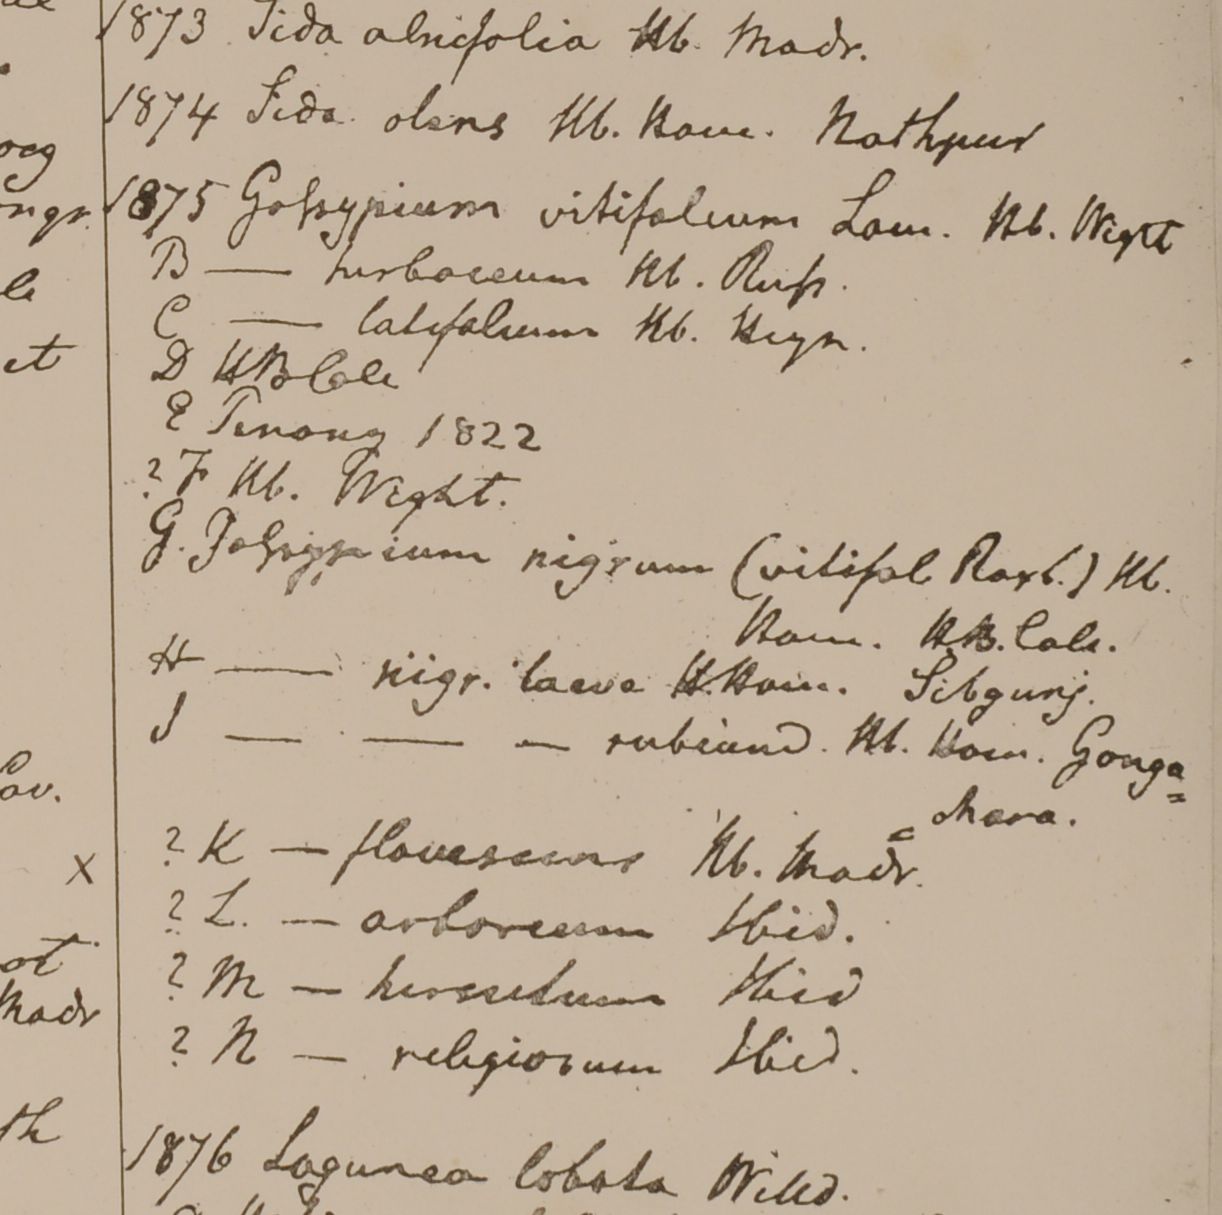 1873 Sida alnifolia Hb. Madr.
1874 Sida olens Hb. Ham. Nathpur
1875 Gossypium vitifolium Lam. Hb. Wight
B — herbaceum Hb. Russ.
C — latifolium Hb. Heyn.
D HB Calc
E Penang 1822
? F Hb. Wight.
G. Gossypium nigrum (vitifol Roxb.) Hb.
Ham. H.B. Calc.
H — nigr. laeve H. Ham. Sibgunj.
I — — — rubicund. Hb. Ham. Gonga=
= chara.
? K — flavescens Hb. Madr.
? L. — arboreum Ibid.
? M — hirsutum Ibid
? N — religiosum Ibid.
1876 Lagunea lobata Willd.
et
Cav.
x
ot
Madr
th